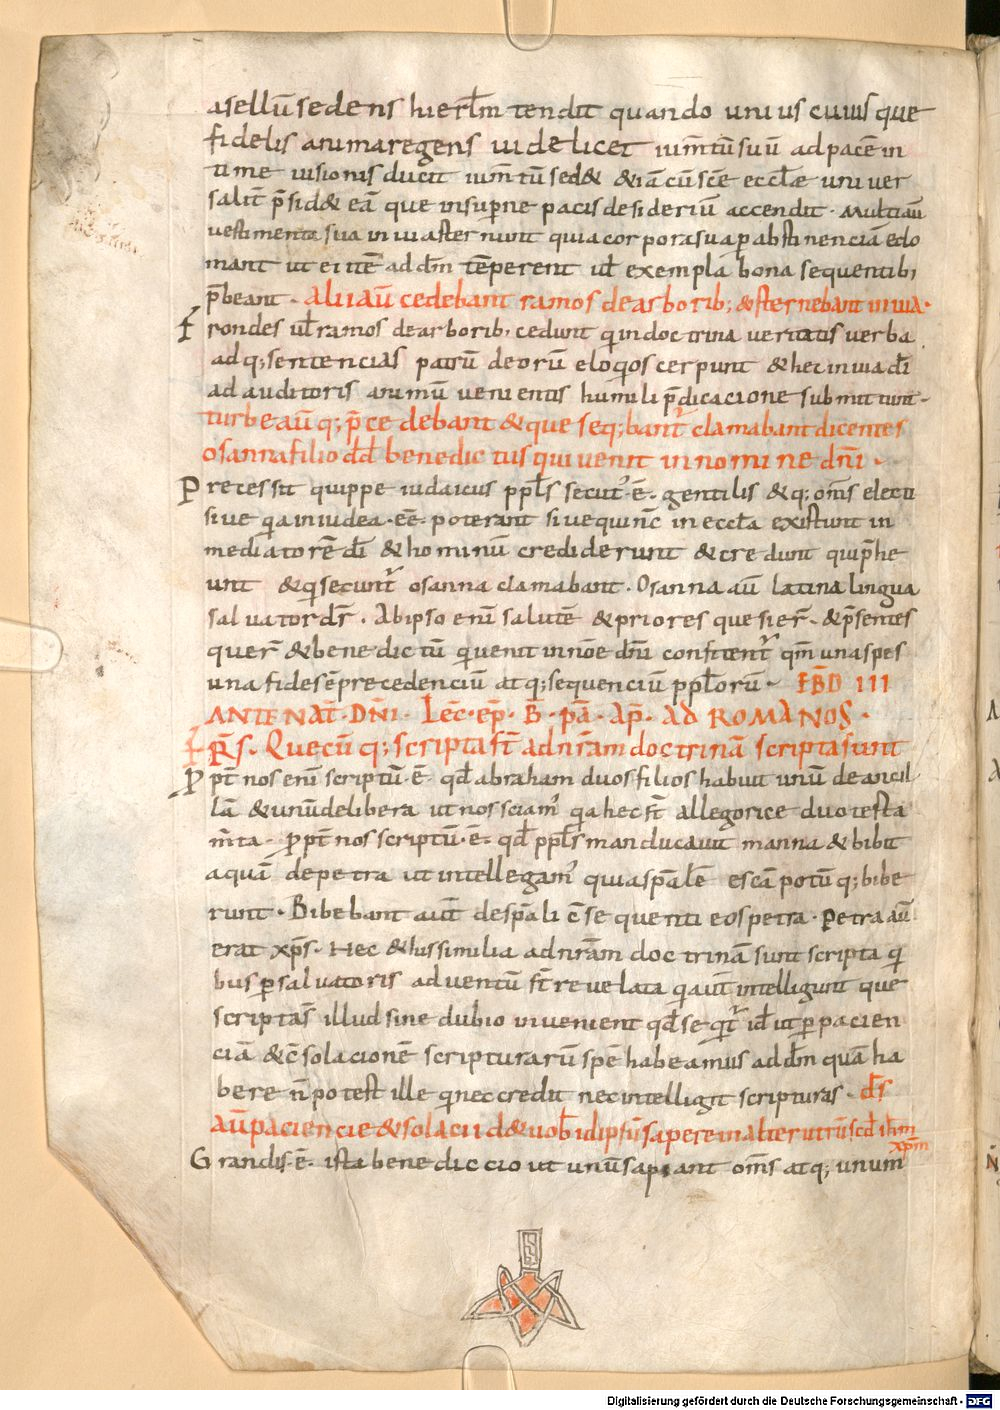 asellū sedens hierl̄m tendit quando unius cuiusque
fidelis anima regens uidelicet ium̄tū suū ad pacē in
time uisionis ducit ium̄tū sed& &iā cū scē eccl̄ae uniuer
salit̄ p̄sid& eā que insup̄ne pacis desideriū accendit · Multi aū
uestimenta sua in uia sternunt quia corpora sua p abstinenciā edo
mant ut ei iter̄ ad dm̄ tēperent ul̄ exempla bona sequentib;
p̄beant · Alii aū cedebant ramos de arborib; & sternebant in uia ·
Frondes ul̄ ramos de arborib; cedunt qi in doctrina ueritatis uerba
adq; sentencias patrū de orū eloqios cerpunt & hec in uia dī
ad auditoris animū uenientis humili p̄dicacione submittunt ·
turbe aū q; p̄cedebant & que seq;bant̄ clamabant dicentes
osanna filio dd̄ benedictus qui uenit in nomine dn̄i ·
Precessit quippe iudaicus ppl̄s secut' ē · gentilis & q; om̄s electi
siue qi in iudea · eē · poterant siue qui nc̄ in eccl̄a existunt in
mediatorē dī & hominū crediderunt & credunt qui p̄he
unt & qi secunt̄ osanna clamabant · Osanna aū latina lingua
saluator dr̄ · Ab ipso enī salutē & priores quesier̄ · & p̄sentes
quer̄ & benedictū qi uenit in nōe dn̄i confitent̄ qm̄ una spes
una fides ē precedenciū atq; sequenciū ppl̄orū · EBD̄ III
ANTE NAT̄ · DN̄I · Lec̄ · ep̄ · B̄ · pā · Ap̄ · AD ROMANOS ·
FR̄S · Quecū q; scripta st̄ ad nrām doctrinā scripta sunt
Ppt̄ nos enī scriptū · ē · qd̄ abraham duos filios habuit unū de ancil
lā & unū de libera ut nos sciam' qi a hec st̄ allegorice duo testa
m̄ta · Ppt̄ nos scriptū · ē · qd̄ ppl̄s manducauit manna & bibit
aquā de petra ut intellegam' qui a sp̄alē escā potū q; bibe
runt · Bibebant aut̄ de sp̄ali c̄sequenti eos petra · Petra aū
erat xp̄s · Hec & his similia ad nrām doctrinā sunt scripta qi
bus p saluatoris aduentū st̄ reuelata qi aut̄ intelligunt que
scripta s̄ illud sine dubio inuenient qd̄ seqit̄ id̄ ut p pacien
ciā & c̄solacionē scripturarū spē habeamus ad dm̄ quā ha
bere n̄ potest ille qi nec credit nec intelligit scripturas · ds̄
aū paciencie & solacii d& uob̄ idipsū sapere in alterutrū scd̄ ih̄m
xpm̄
Grandis · ē · ista benediccio ut unū sapiant om̄s atq; unum
Digitalisierung gefördert durch die Deutsche Forschungsgemeinschaft - DFG